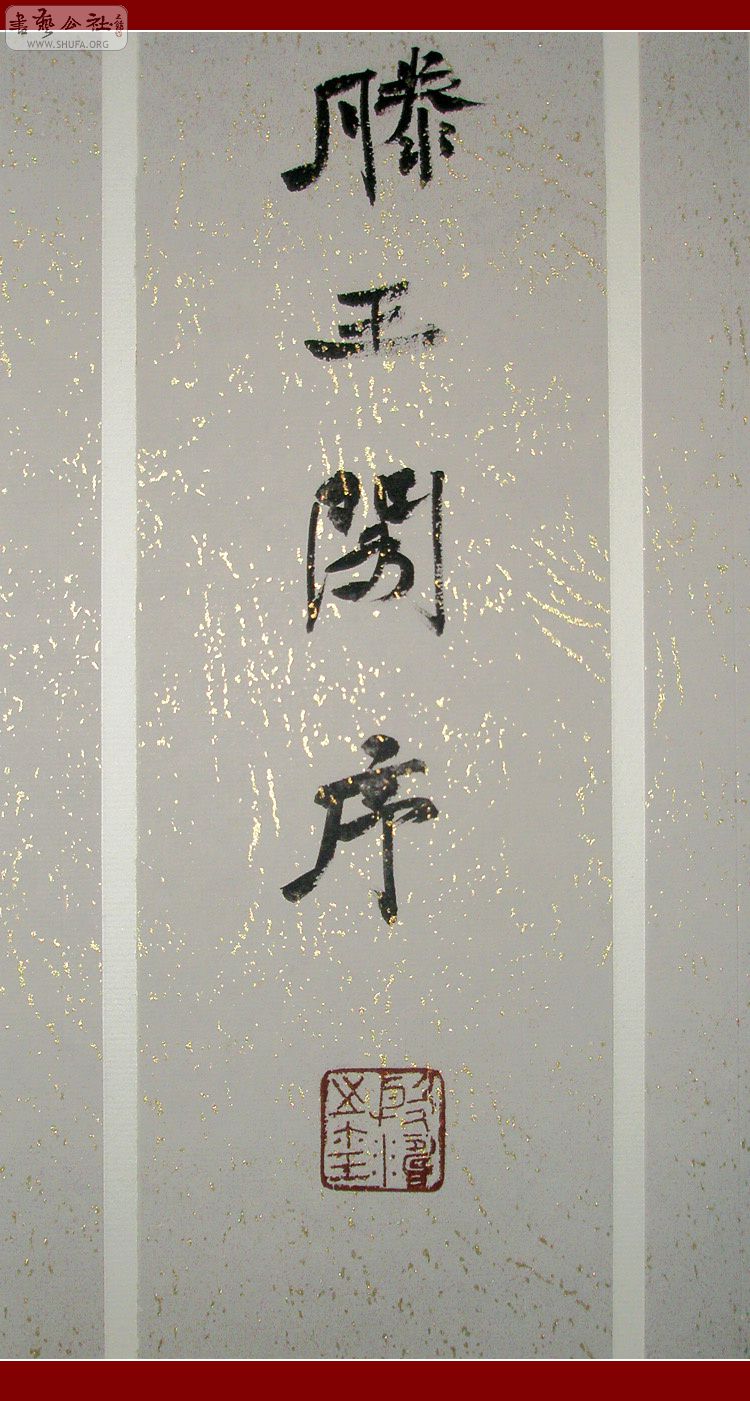 書藝公社
WWW.SHUFA.ORG
滕王閣序